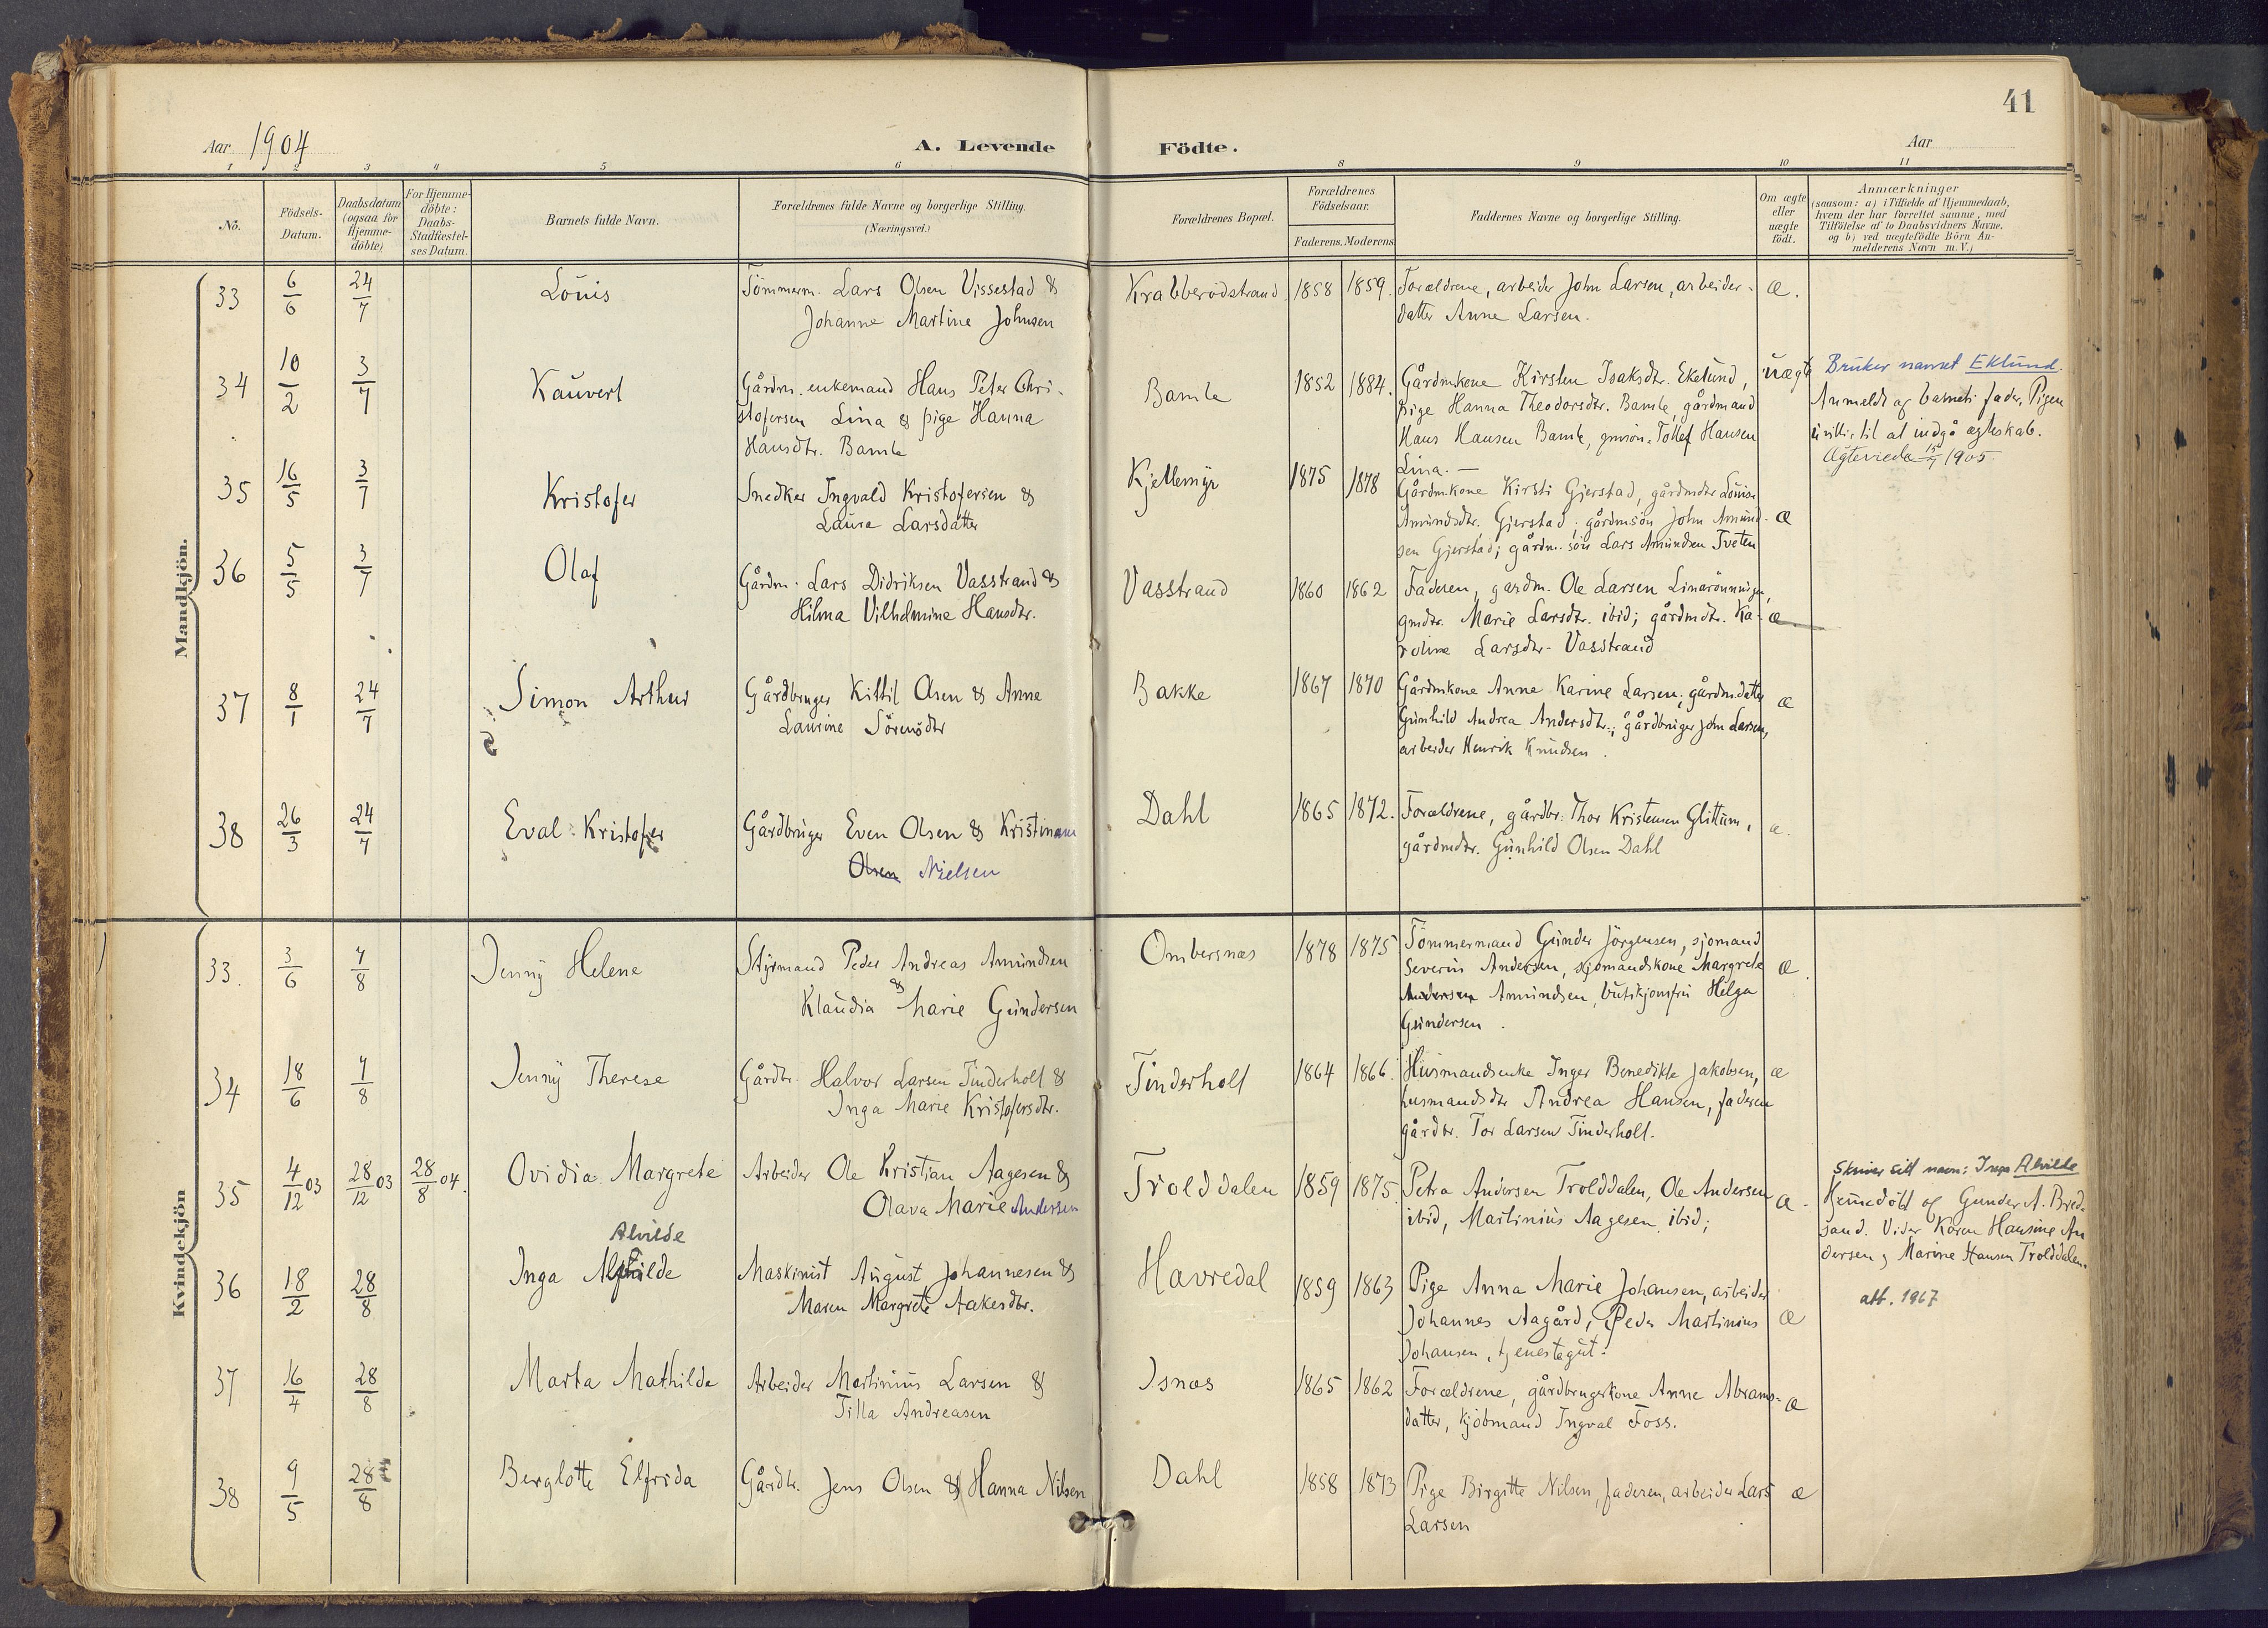 41
Aar 1904
A. Levende Födte.
Aar
1 2 3 4 5 6 8 9 10 11
No.
Födsels-Datum.
Daabsdatum (ogsaa for Hjemme-döbte)
For Hjemme-döbte: Daabs-Stadfæstel-ses Datum.
Barnets fulde Navn.
Forældrenes fulde Navne og borgerlige Stilling.
(Næringsvei.)
Forældrenes Bopæl.
Forældrenes Födselsaar.
Faderens. Moderens
Faddernes Navne og borgerlige Stilling.
Om ægte eller uægte födt.
Anmærkninger
(saasom: a) i Tilfælde af Hjemmedaab,
hvem der har forrettet samme, med
Tilföielse af to Daabsvidners Navne,
og b) ved uægtefödte Börn An-
melderens Navn m. V.)
Mandkjön.
33 6/6 24/7 Louis Tömmerm. Lars Olsen Vissestad &
Johanne Martine Johnsen
Krabberödstrand 1858 1859. Forældrene, arbeider John Larsen, arbeider-
datter Anne Larsen.
æ.
34 10/2 3/7 Kauvert Gårdm. enkemand Hans Peter Chri-
stofersen Lina & pige Hanna
Hansdtr. Bamle
Bamle 1852 1884. Gårdmkone Kirsten Isaksdtr. Ekelund,
pige Hanna Theodorsdtr. Bamle, gårdmand
Hans Hansen Bamle, gmsön. Tollef Hansen
Lina. —
uægte
Bruker navnet Eklund.
Anmeldt af barnets fader. Pigen
uvillig til at indgå ægteskab.
Ægteviede 15/7 1905.
35 16/5 3/7 Kristofer Snedker Ingvald Kristofersen &
Laura Larsdatter
Kjellemyr 1875 1878 Gårdmkone Kirsti Gjerstad, gårdmdtr Louise
Amundsdtr. Gjerstad; gårdmsön John Amund-
sen Gjerstad; gårdm. sön Lars Amundsen Tveten
æ
36 5/5 3/7 Olaf Gårdm. Lars Didriksen Vasstrand &
Hilma Vilhelmine Hansdtr.
Vasstrand 1860 1862 Faderen, gardm. Ole Larsen
gmdtr. Marie Larsdtr. ibid; gårdmdtr. Ka-
roline Larsdtr. Vasstrand
æ
37 8/1 24/7 Simon Arthur Gårdbruger Kittil Olsen & Anne
Laurine Sörensdtr
Bakke 1867 1870 Gårdmkone Anne Karine Larsen; gårdm.datter
Gunhild Andrea Andersdtr.; gårdbruger John Larsen,
arbeider Henrik Knudsen.
æ
38 26/3 24/7 Eval Kristofer Gårdbruger Even Olsen & Kristinane
Olsen Nielsen
Dahl 1865 1872. Forældrene, gårdbr. Thor Kristensen Glittum,
gårdmdtr. Gunhild Olsen Dahl
æ.
Kvindekjön
33. 3/6 7/8 Jenny Helene Styrmand Peder Andreas Amundsen
& Klaudia Marie Gundersen
Ombersnæs 1878 1875 Tömmermand Gunder Jörgensen, sjomand
Severin Andersen, sjomandskone Margrete
Andersen Amundsen, butikjomfru Helga
Gundersen.
æ.
34 18/6 7/8 Jenny Therese Gårdbr. Halvor Larsen Tinderholt &
Inga Marie Kristofersdtr.
Tinderholt 1864 1866. Husmandsenke Inger Benedikte Jakobsen,
husmandsdtr Andrea Hansen, faderen
gårdbr. Tor Larsen Tinderholt.
æ
35 4/12 03 28/12 03 28/8 04. Ovidia Margrete Arbeider Ole Kristian Aagesen &
Olava Marie Andersen
Trolddalen 1859 1875. Petra Andersen Trolddalen, Ole Andersen
ibid, Martinius Aagesen ibid;
æ.
Skriver sitt navn: Inga Alvilde
Hjemedöbt af Gunder A. Bred-
sand. Vider Karen Hansine An
dersen & Marine Hansen Trolddalen.
36 18/2 28/8 Alvilde
Inga Maskinist August Johannesen &
Maren Margrete Aakersdtr.
Havredal 1859 1863 Pige Anna Marie Johansen, arbeider
Johannes Aagård, Peder Martinius
Johansen, tjenestegut.
æ
att. 1967
37 16/4 28/8 Marta Mathilde Arbeider Martinius Larsen &
Tilla Andreasen
Isnæs 1865 1862 Forældrene, gårdbrugerkone Anne Abrams-
datter, kjöbmand Ingval Foss.
æ
38 9/5 28/8 Berglotte Elfrida Gårdbr. Jens Olsen & Hanna Nilsen
Dahl 1858 1873 Pige Birgitte Nilsen, faderen, arbeider Lars
Larsen
æ